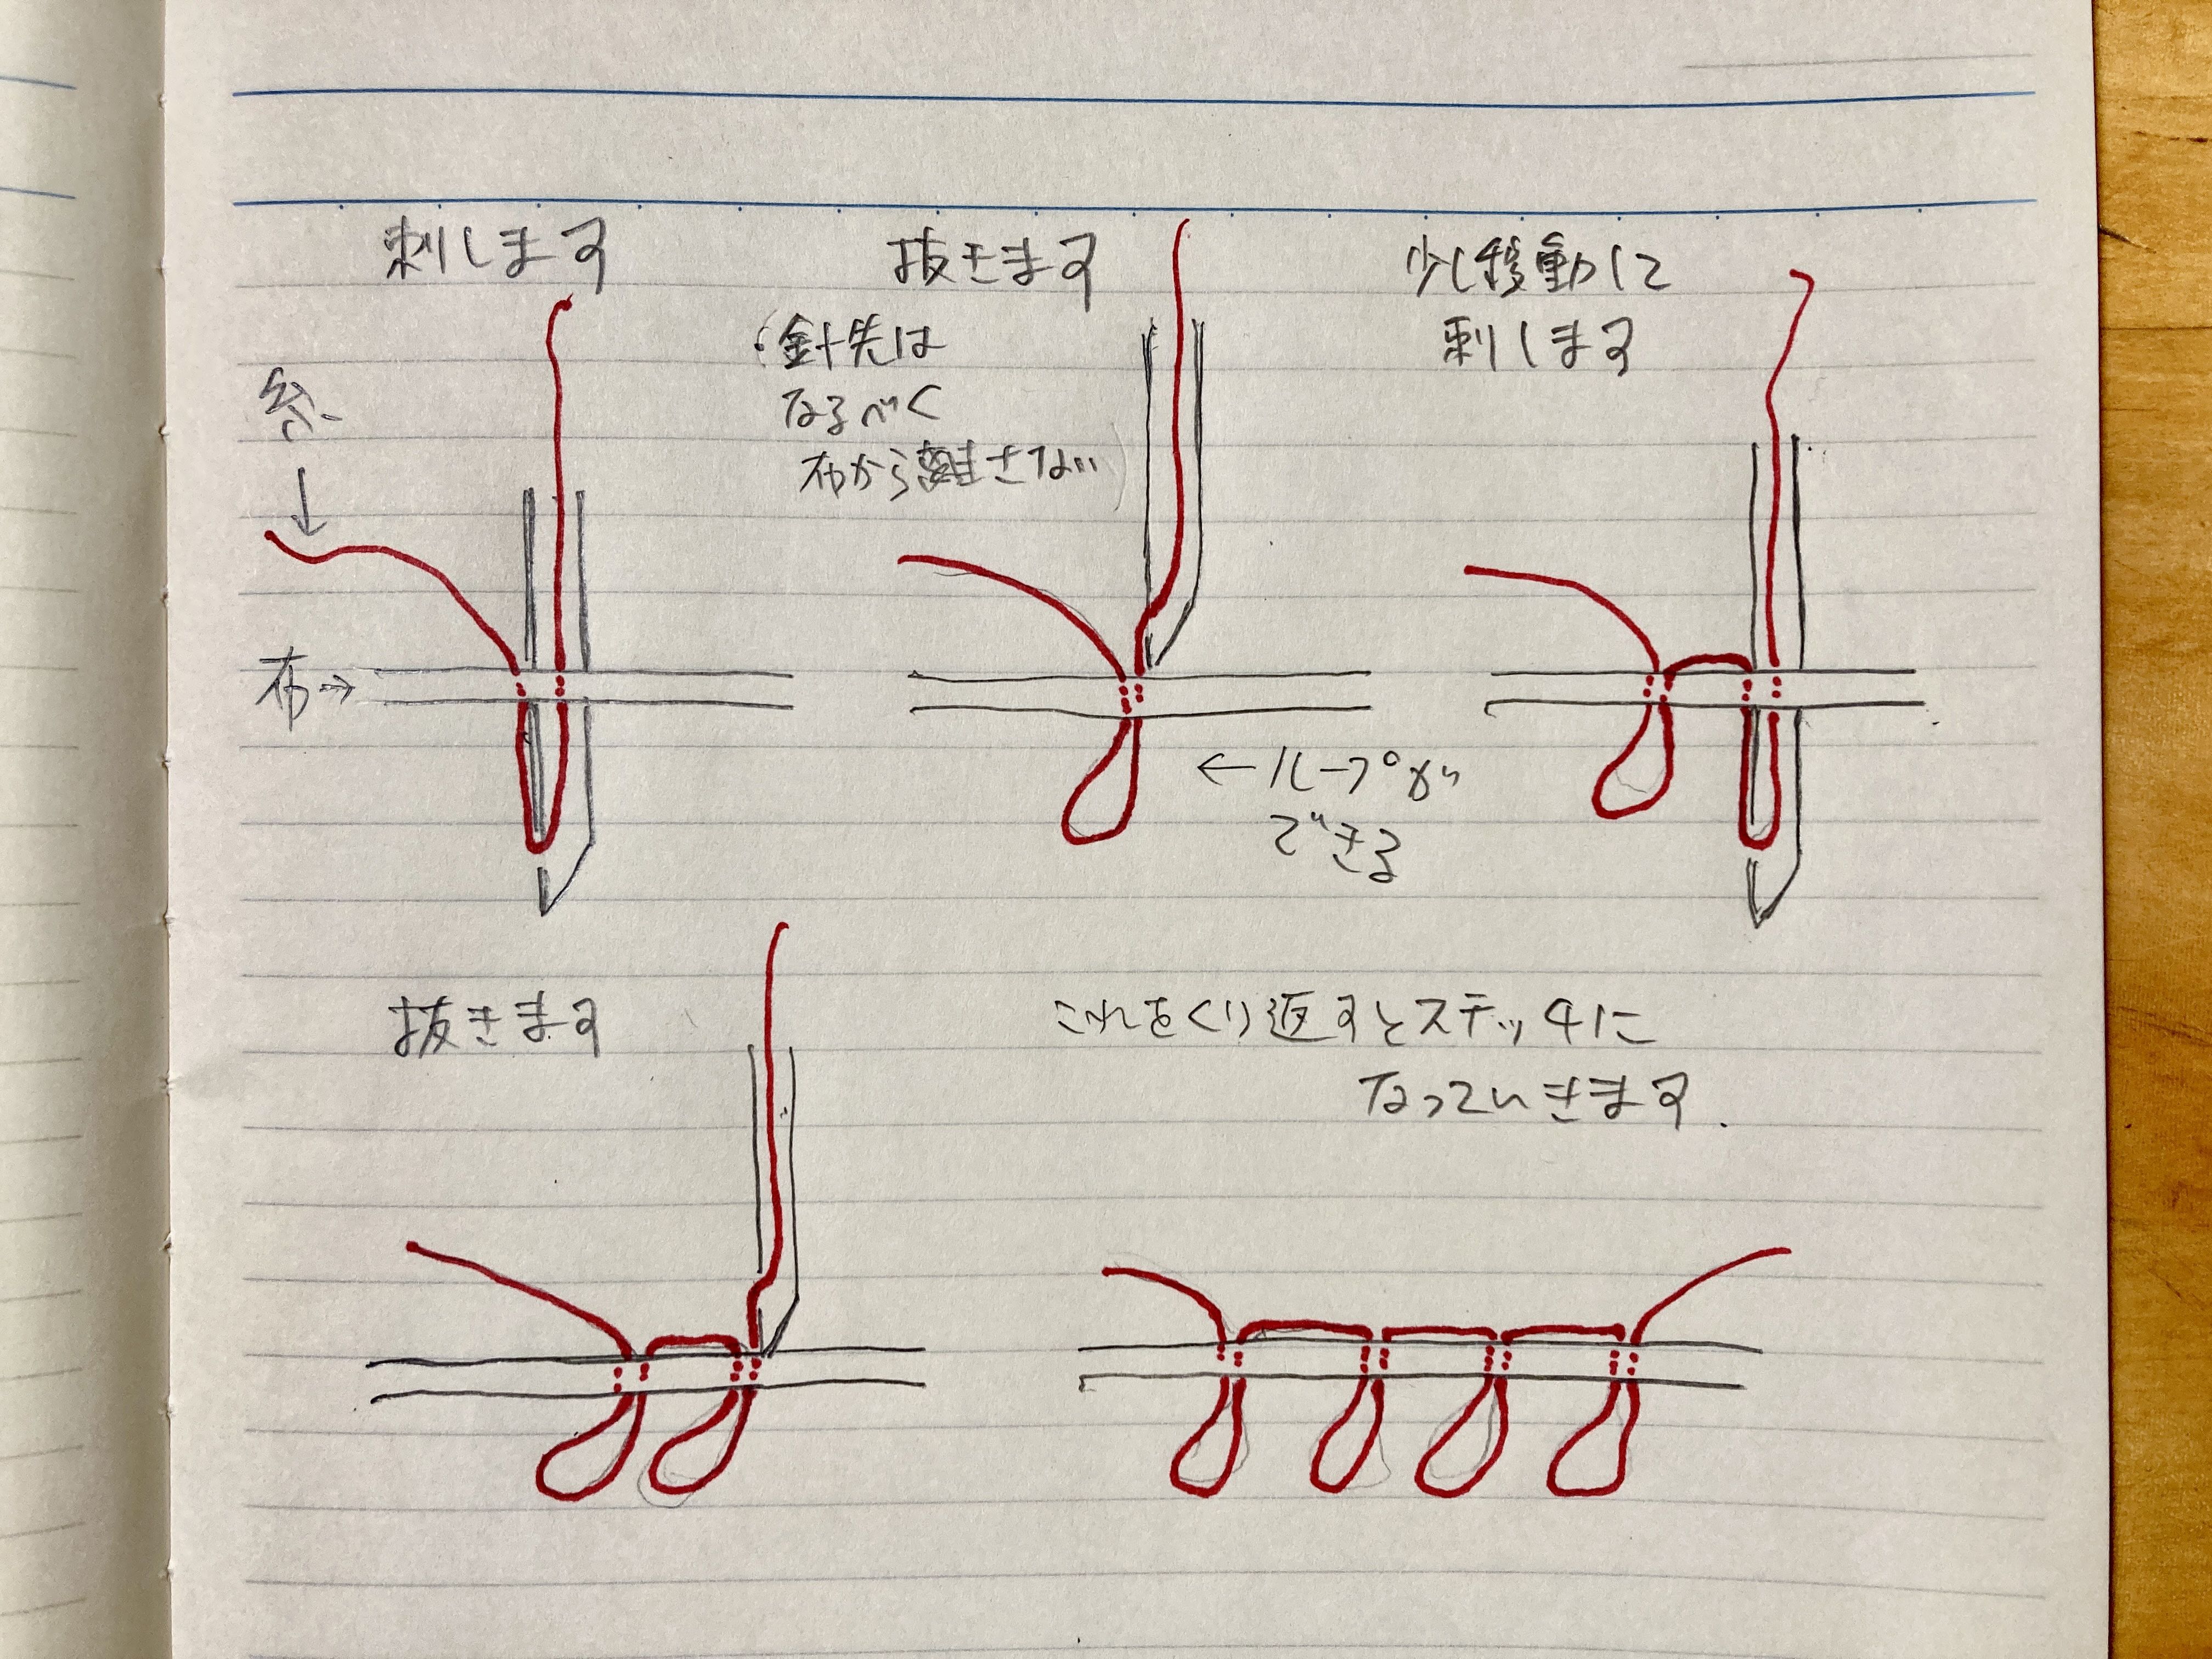 刺します
糸
↓
布→
抜きます
(針先は
なるべく
布から離さない)
←ループが
できる
少し移動して
刺します
抜きます
これをくり返すとステッチに
なっていきます.